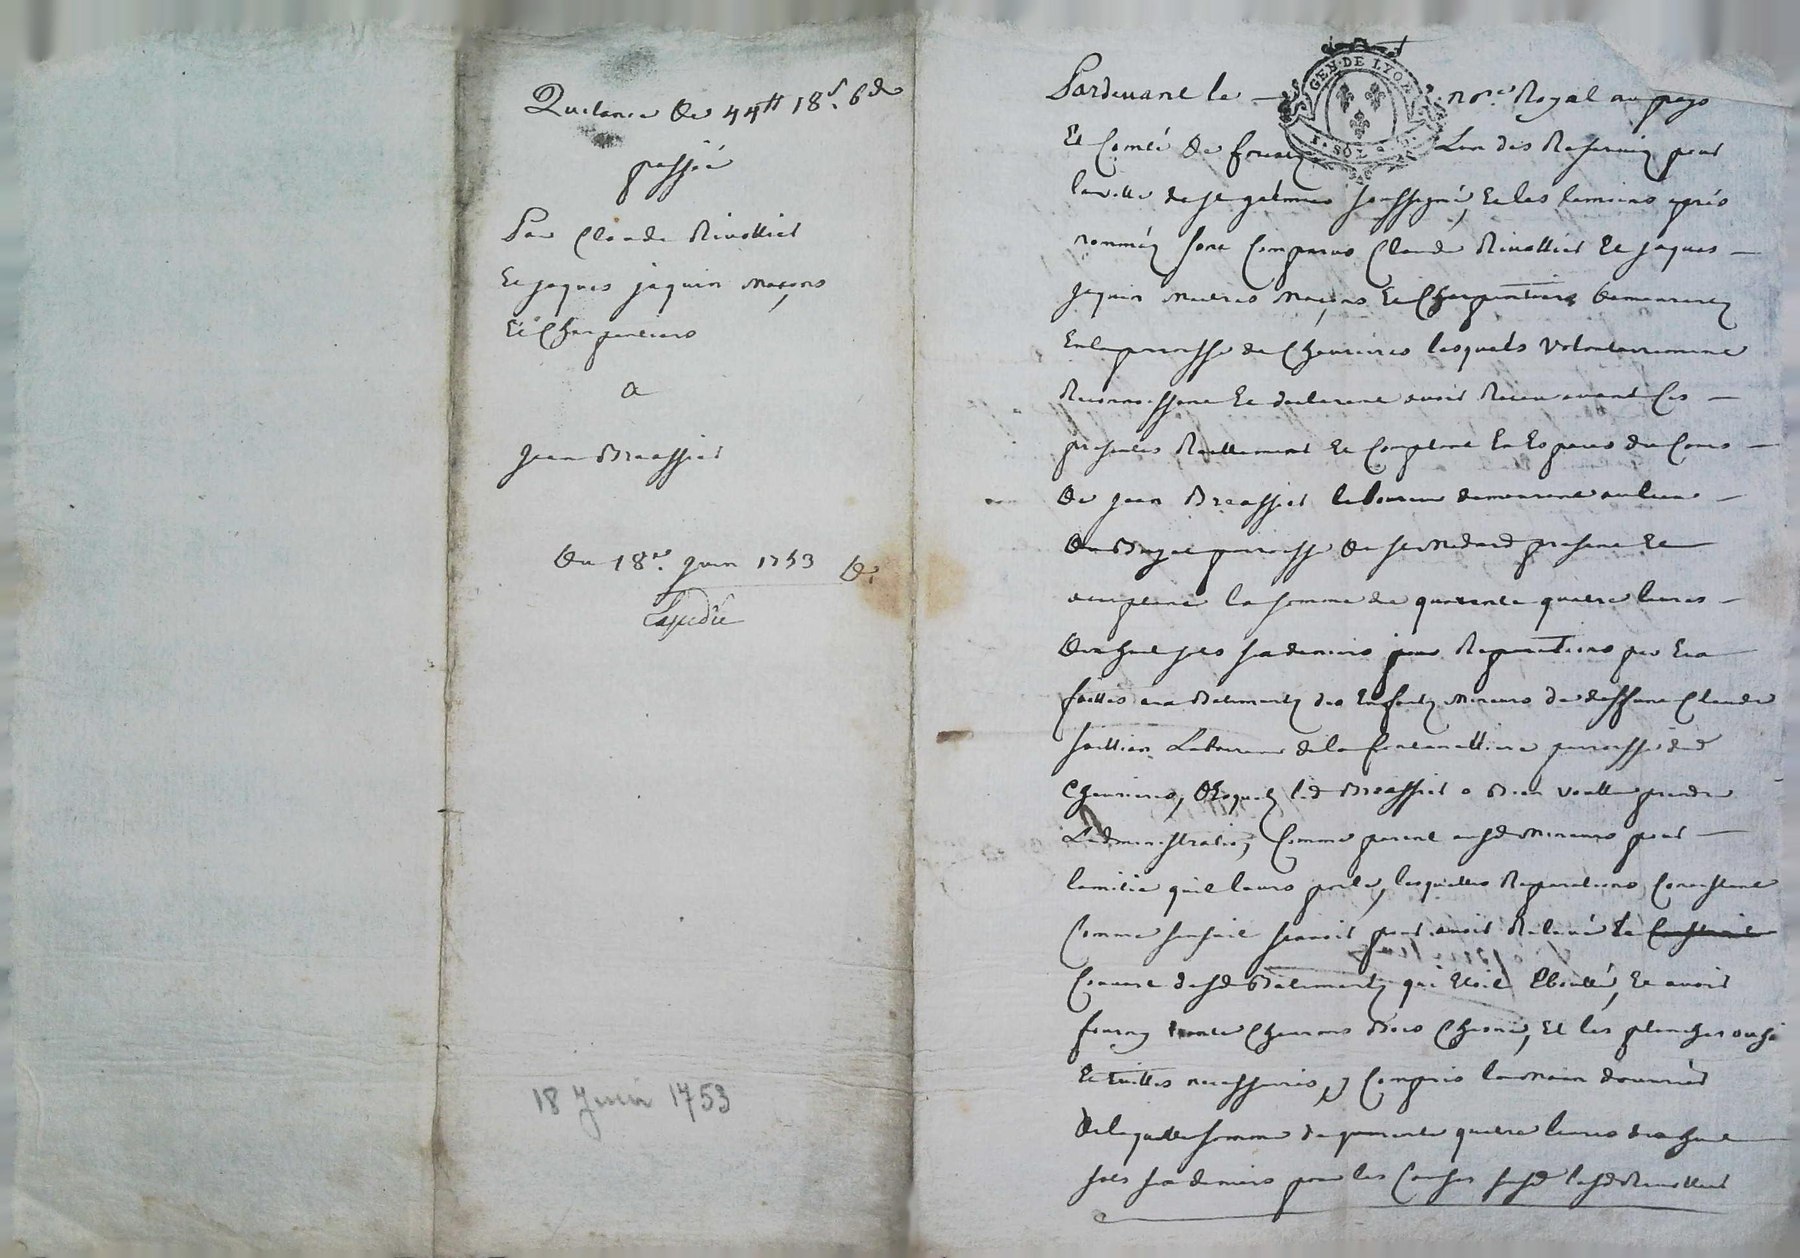 Quitance de 44tt 18s. 6d
passée
Par Claude Rivollier
Et jaques jaquin maçons
Et Charpentiers
a
jean Brassier
Du 18e. juin 1753
Expédié
18 Juin 1753
GEN. DE LYON
1. SOL
Pardevant le — Nore. Royal au pays
Et Comté de forestz L'un des Reservéz pour
la ville de st galmier soussigné, Et les temoins après
nommés sont Comparus Claude Rivollier Et jaques —
jaquin maitres maçons Et Charpentiers demeurants
En la parroisse de Chevrieres lesquels volontairement
Reconnoissent Et declarent avoir Receu avant Ces —
presentes Reellement Et Comptant En Especes du Cours —
De jean Brassier laboureur demeurant au lieu —
Du parroisse De st medard present Et
acceptant la somme de quarante quatre livres —
Dixhuit sols six deniers pour Reparations par Eux
faittes aux Batimentz des Enfantz mineurs de deffunt Claude
Laboureur de la parroisse dud
Chevrieres, Desquelz led Brassier a Bien voullu prendre
L'administration, Comme parent ausd mineurs pour —
lamitié quil leurs porte, lesquelles Reparations Consistent
Comme sensuit scavoir pour avoir Relevé le
Couvert desd Batimentz qui Etoit Eboullé, Et avoir
fourny trente Chevrons Bois Chesne, Et les planches aussi
Et tuilles necessaires, y Compris la main d'ouvrier
De laquelle somme de quarante quatre livres dixhuit
sols six deniers pour les Causes susd lesd Rivollier